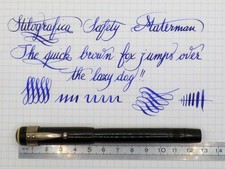 Stilografica Safety Waterman
The quick brown fox jumps over
the lazy dog !!
1 2 3 4 5 6 7 8 9 10 11 12 13 14